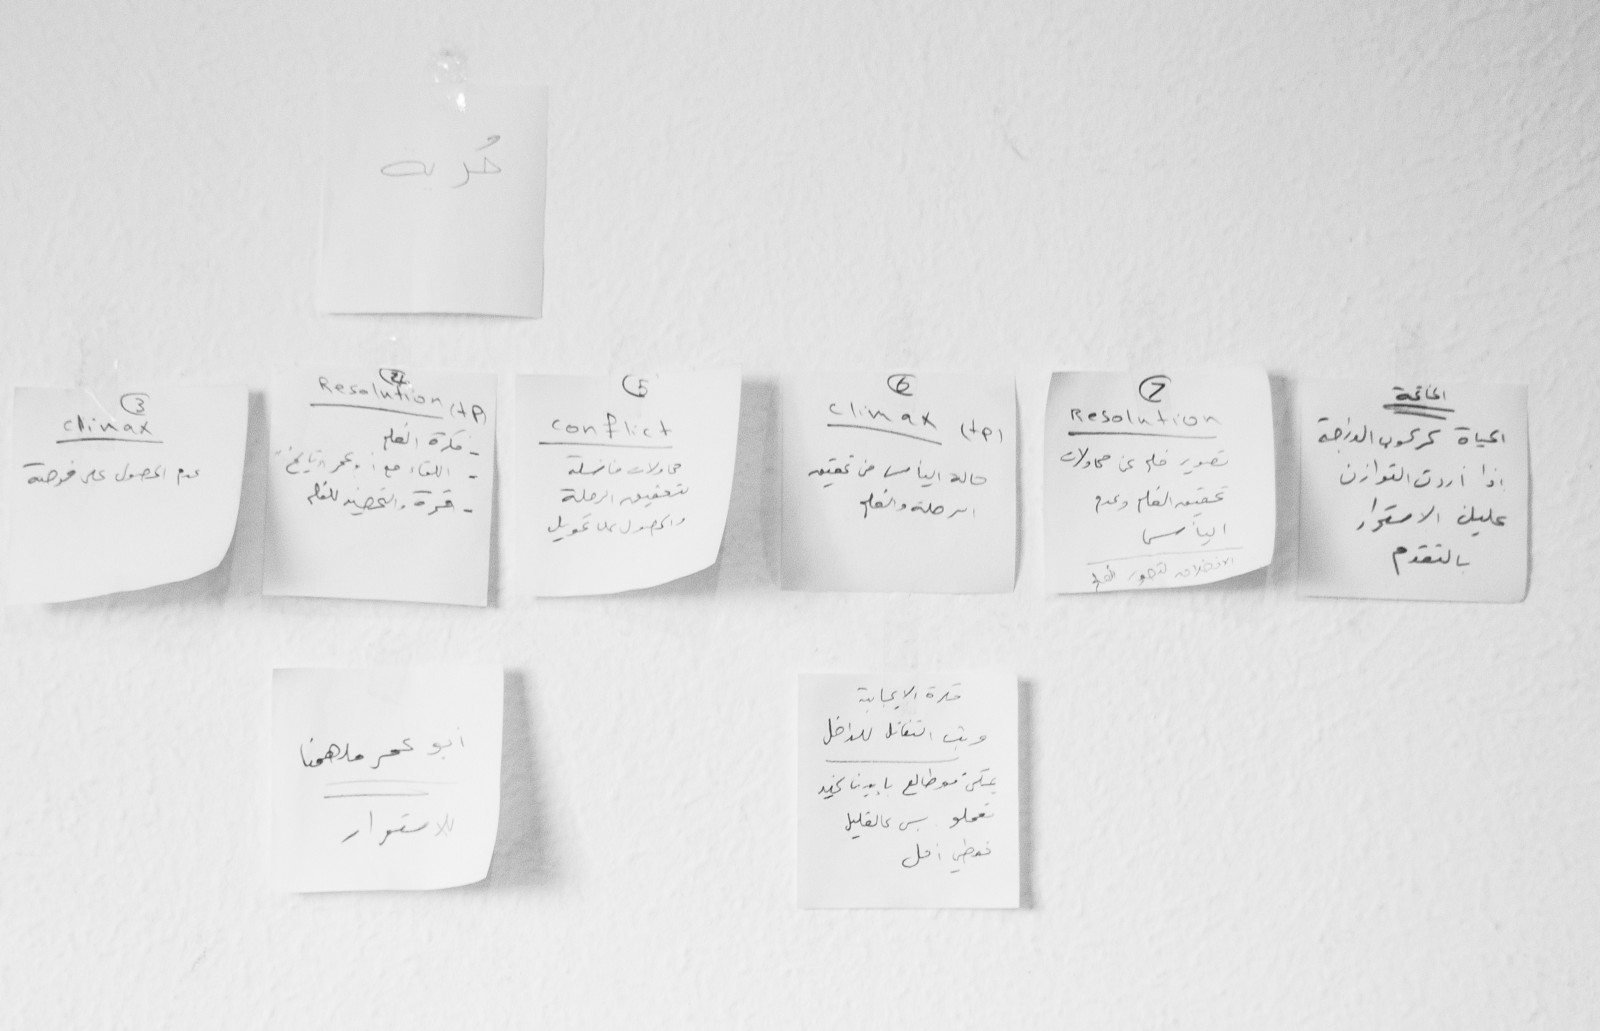 حُريه
3
climax
عدم الحصول على فرصة
4
Resolution (tP)
- فكرة الفلم
- اللقاء مع أبو عمر
- فترة والتحضير للفلم
5
conflict
محاولات فاشلة
لتحقيق الرحلة
والحصول على تمويل
6
climax (tP)
حالة اليأس من تحقيق
الرحلة والفلم
7
Resolution
تصوير فلم عن محاولات
تحقيق الفلم وعدم
اليأس
الخاتمة
الحياة كركوب الدراجة
اذا أردت التوازن
عليك الاستمرار
بالتقدم
أبو عمر ملهمنا
للاستمرار
فكرة الايجابية
وبث التفائل للداخل
مو طالع بايدنا
بس عالقليل
نعطي أمل